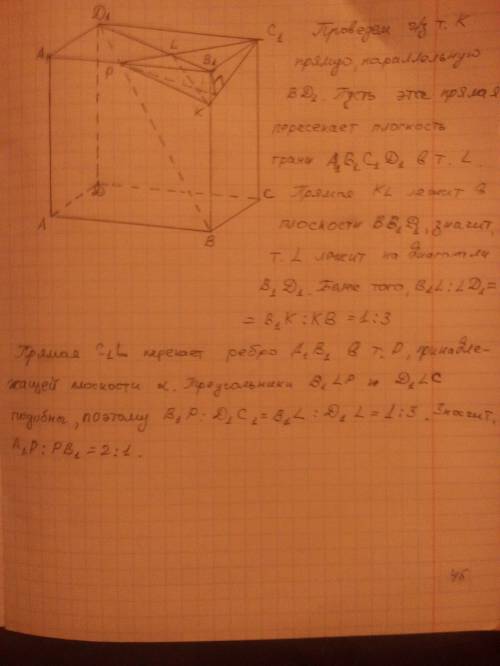 D₁
C₁
A₁
L
B₁
P
K
D
C
A
B
Проведем ч/з т. K
прямую, параллельную
BD₁. Пусть эта прямая
пересекает плоскость
грани A₁B₁C₁D₁ в т. L.
Прямая KL лежит в
плоскости BB₁D₁, значит,
т. L лежит на диагонали
B₁D₁. Более того, B₁L:LD₁=
= B₁K:KB = 1:3
Прямая C₁L перекает ребро A₁B₁ в т. P, принадле-
жащей плоскости α. Треугольники B₁LP и D₁LC
подобны, поэтому B₁P:D₁C₁=B₁L:D₁L=1:3. Значит,
A₁P:PB₁=2:1.